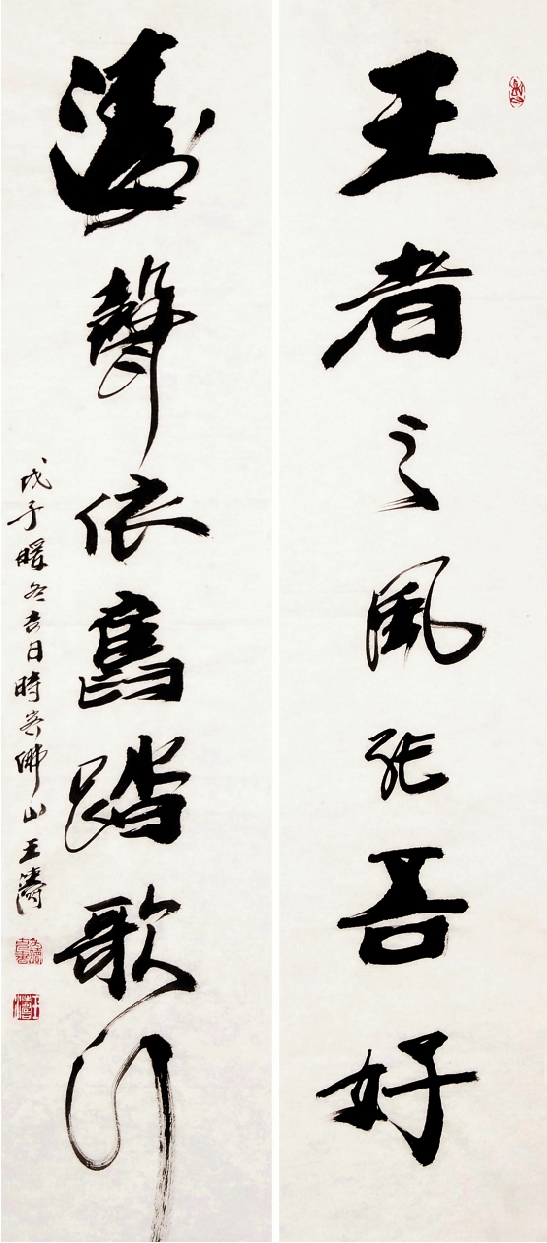 王者之風張吾好
濤聲依舊踏歌行
戊子暖冬吉日時客佛山王濤